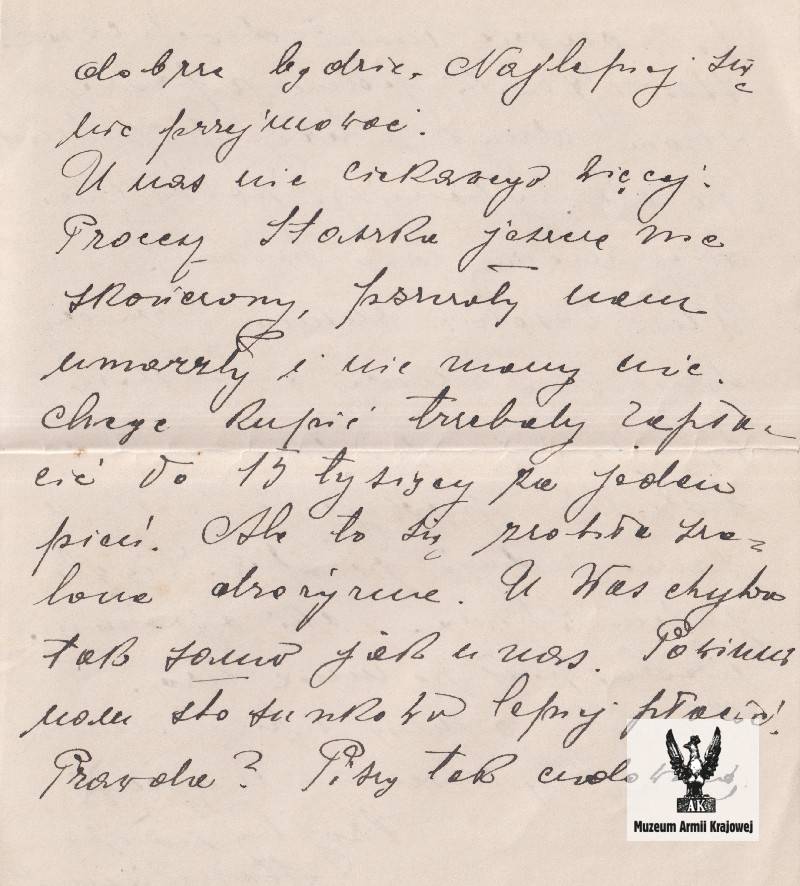 dobrze będzie. Najlepiej się
nie przejmować.
U nas nic ciekawego więcej.
Procesy Staszka jeszcze nie
skończony, pszczoły nam
umarzły i nie mamy nic.
Chcąc kupić trzebaby zapła-
cić do 15 tysięcy za jeden
pień. Ale to się zrobiła sza-
lona drożyzna. U Was chyba
tak samo jak u nas. Powinni
nam stosunkowo lepiej płacić!
Prawda? Piszę tak
AK
Muzeum Armii Krajowej